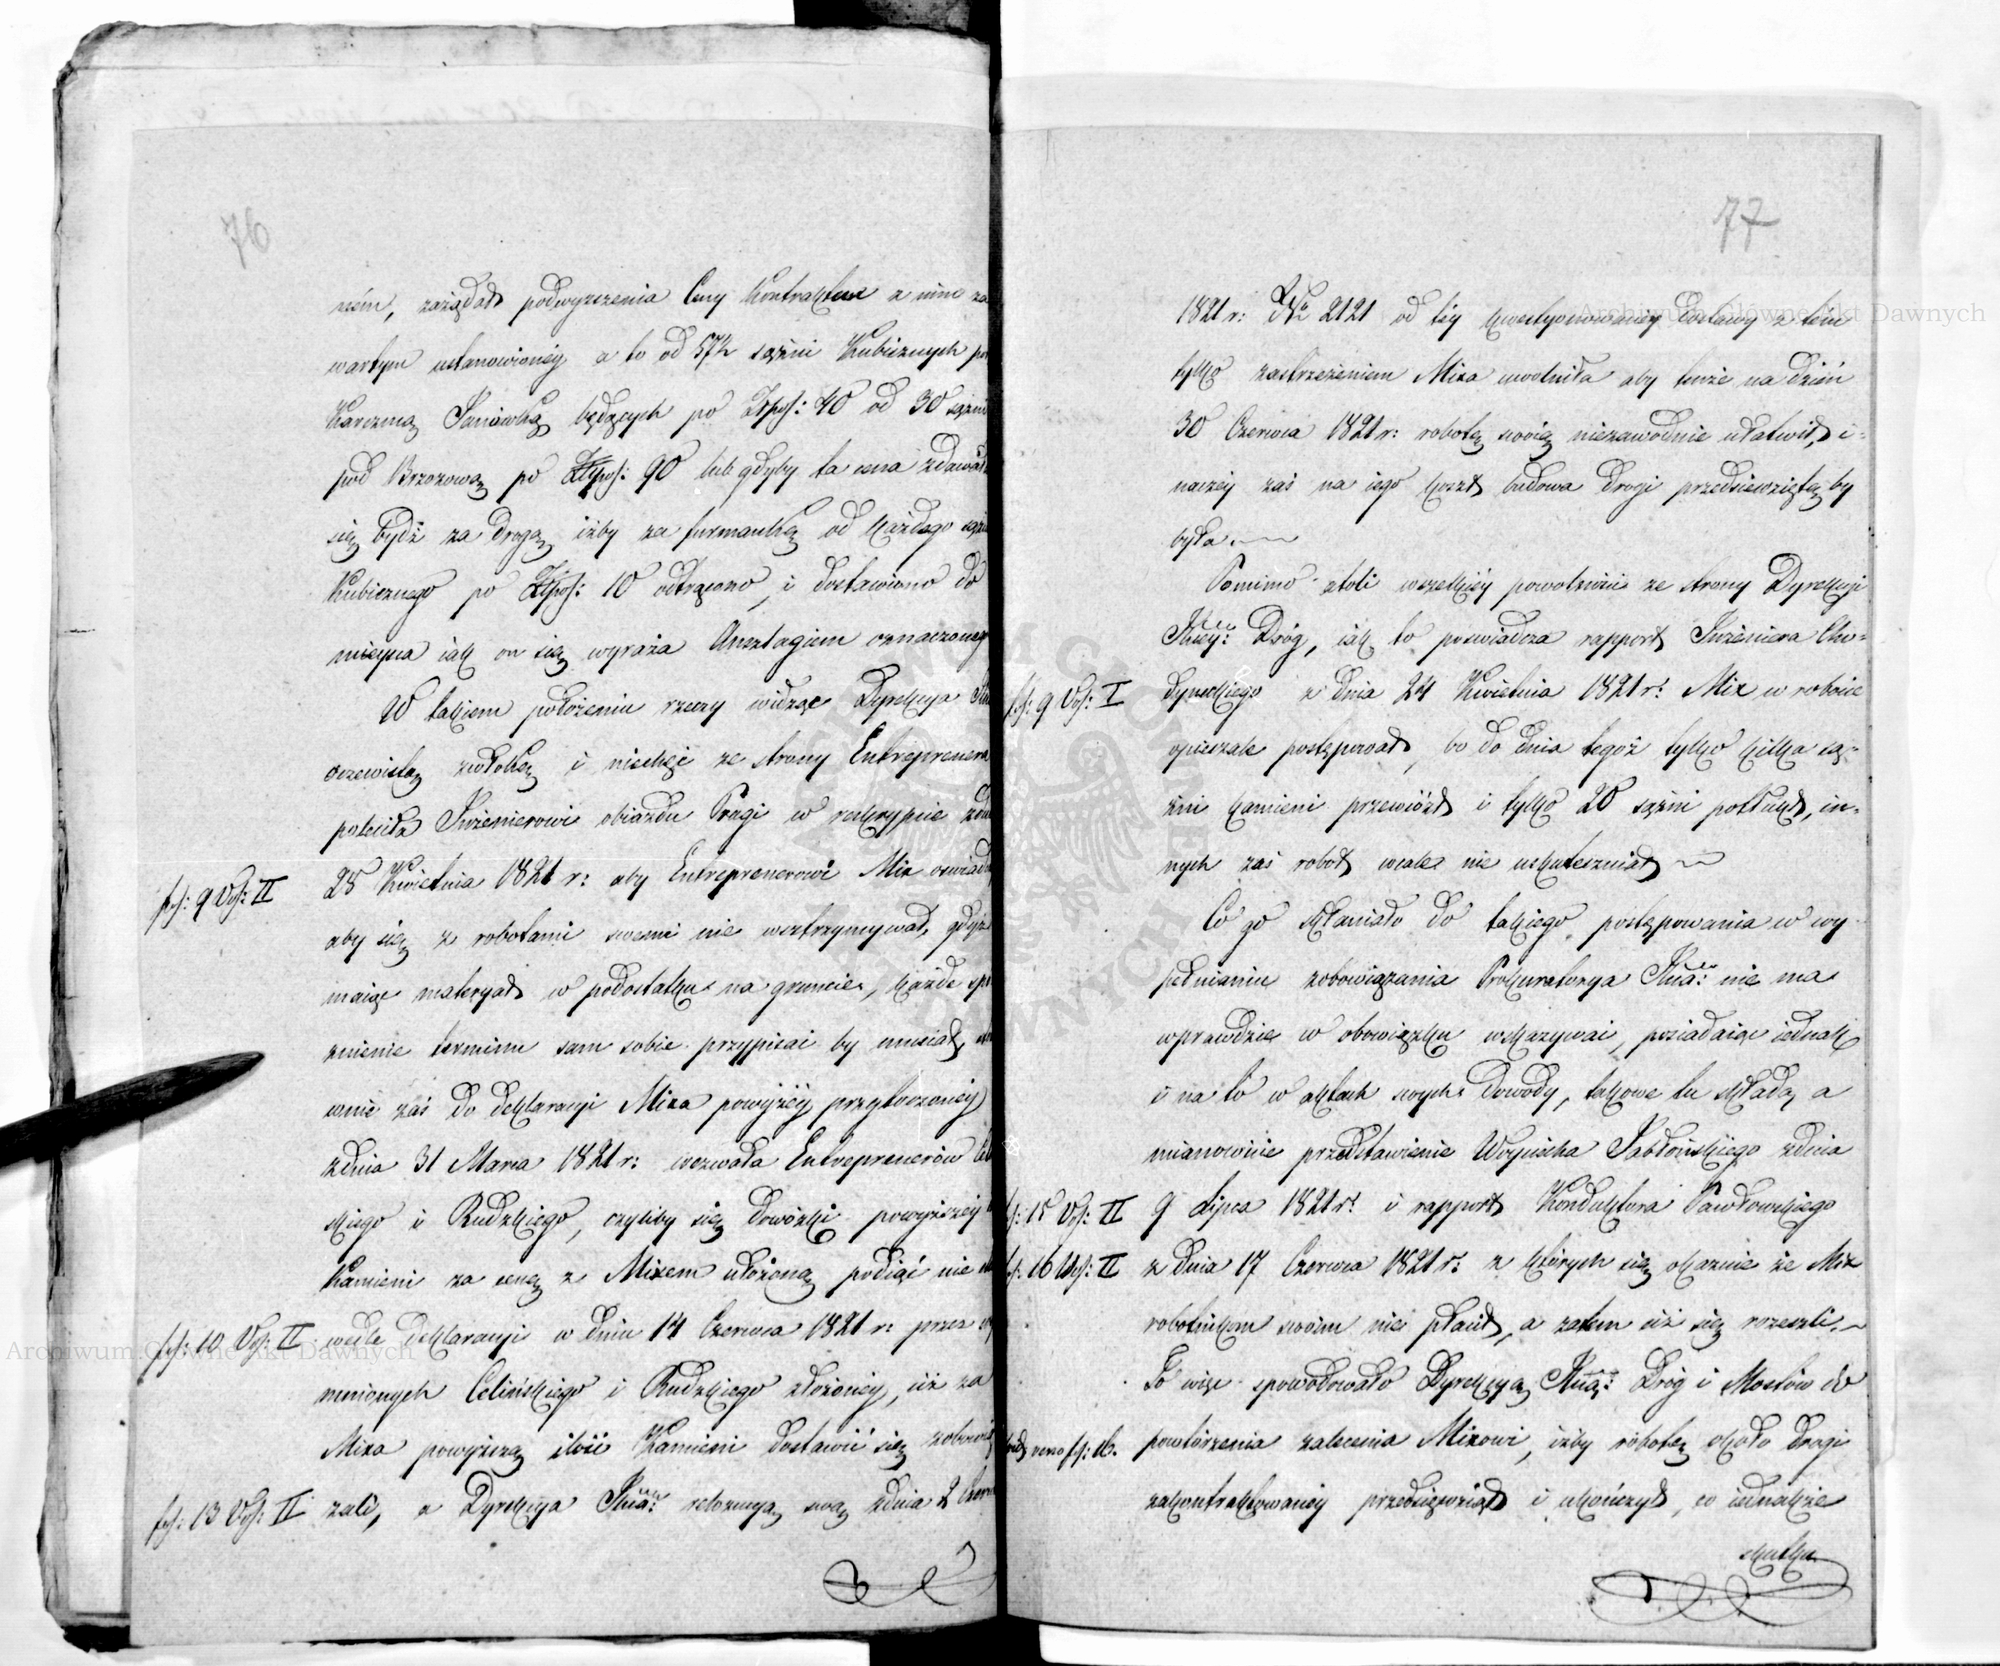 76
nem, zażądał podwyższenia Ceny Kontraktem z nim za
wartym ustanowioney a to od 57½ sążni Kubicznych po
Karczmą Janówką będących po Złpol: 40 od 30 sążni
pod Brzozową po Złpol: 90 lub gdyby ta cena zdawała
się bydź za drogą, iżby za furmankę od każdego sążn
Kubicznego po Złpol: 10 odtrącono, i dostawiono do
mieysca iak on się wyraża Ansztagiem oznaczonego
W takiem położeniu rzeczy widząc Dyrekcya
oczewistą zwłokę i niechęć ze strony Entreprenera
poleciła Inżenierowi obiazdu Pragi w reskrypcie zdn
fol: 9 Vol: II
25 Kwietnia 1821 r: aby Entreprenerowi Mix oswiad
aby się z robotami swemi nie wsztrzymywał, gdyż
maiąc materyał w podostatku na gruncie, każde spo
znienie terminu sam sobie przypisai by musiał,
wnie zaś do deklaracyi Mixa powyżéy przytoczonéy
zdnia 31 Marca 1821 r: wezwała Entreprenerów Cel
skiego i Rudzkiego, czyliby się dowózki powyższéy
Kamieni za cenę z Mixem ułożoną podiąć nie
fol: 10 Vol: II
wedle deklaracyi w dniu 14 Czerwca 1821 r: przez
mnionych Celińskiego i Rudzkiego złożonéy, iż za
Mixa powyższą ilość Kamieni dostawić się zobowią
fol: 13 Vol: II
zali, a Dyrekcya Jlna: rezolucyą swą zdnia 2 Czerw
77
1821 r: No 2121 od téy kwestyonowanéy dostawy z tém
tylko zastrzeżeniem Mixa uwolniła aby tenże na dzień
30 Czerwca 1821 r: robotę swoię niezawodnie ułatwił, i=
naczéy zaś na iego koszt budowa drogi przedsiewziętą by
była.
Pomimo atoli wszelkiéy powolności ze strony Dyrekcyi
Jlnéy: Dróg, iak to poswiadcza rapport Inżeniera Cho=
fol: 9 Vol: II
dyneckiego z dnia 24 Kwietnia 1821 r: Mix w robocie
opieszale postępował, bo do dnia tegoż tylko kilka są=
żni kamieni przewiózł i tylko 20 sążni potłukł, in=
nych zaś robot wcale nie uskuteczniał
Co go skłaniało do takiego postępowania w wy
pełnianiu zobowiązania Prokuratorya Jlna: nie ma
wprawdzie w obowiązku wskazywać, posiadaiąc iednak
i na to w aktach swych dowody, takowe tu składa, a
mianowicie przedstawienie Woyciecha Jabłońskiego zdnia
fol: 15 Vol: II
9 Lipca 1821 r: i rapport Konduktora Pawłowskiego
fol: 16 Vol: II
z dnia 17 Czerwca 1821 r: z których się okazuie że Mix
robotnikom swoim nie płacił, a zatem iż się rozeszli.
To więc spowodowało Dyrekcyą Jlną: Dróg i Mostów do
vide verso fol: 16.
powtórzenia zalecenia Mixowi, iżby robotę około drogi
zakontraktowanéy przedsięwziął i ukończył, co iednakże
skutku
Archiwum Główne Akt Dawnych
Archiwum Główne Akt Dawnych